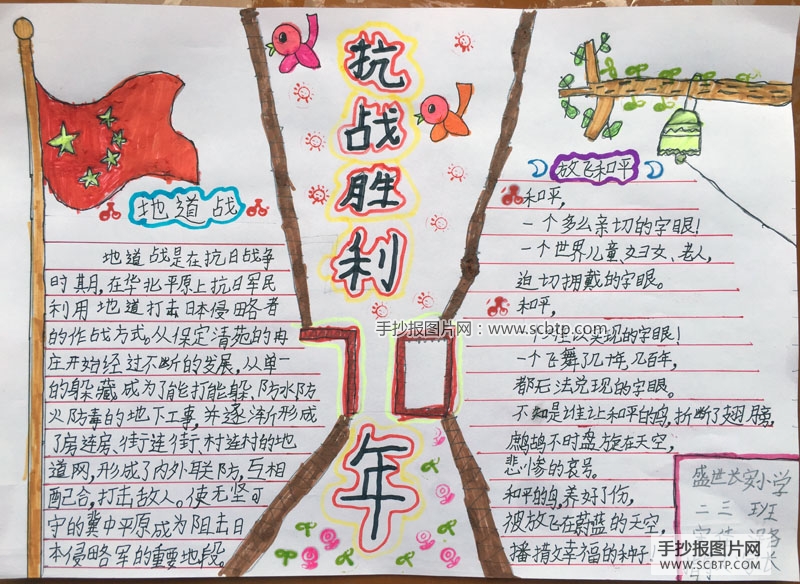 抗
战
胜
利
70
年
地道战
地道战是在抗日战争
时期,在华北平原上抗日军民
利用地道打击日本侵略者
的作战方式。从保定清苑的冉
庄开始经过不断的发展,从单一
的躲藏成为了能打能躲、防水防
火防毒的地下工事,并逐渐形成
了房连房、街连街、村连村的地
道网,形成了内外联防,互相
配合,打击敌人。使无坚可
守的冀中平原成为阻击日
本侵略军的重要地段。
放飞和平
和平,
一个多么亲切的字眼!
一个世界儿童、妇女、老人,
迫切拥戴的字眼。
和平,
实现的字眼!
一个飞舞了几十年,几百年,
都无法兑现的字眼。
不知是谁让和平的鸟,折断了翅膀,
鹧鸪不时盘旋在天空,
悲惨的哀号。
和平的鸟,养好了伤,
被放飞在蔚蓝的天空,
播撒幸福的种子!
盛世长安小学
二三班
手抄报图片网:www.scbtp.com
手抄报图片网
WWW.SCBTP.COM